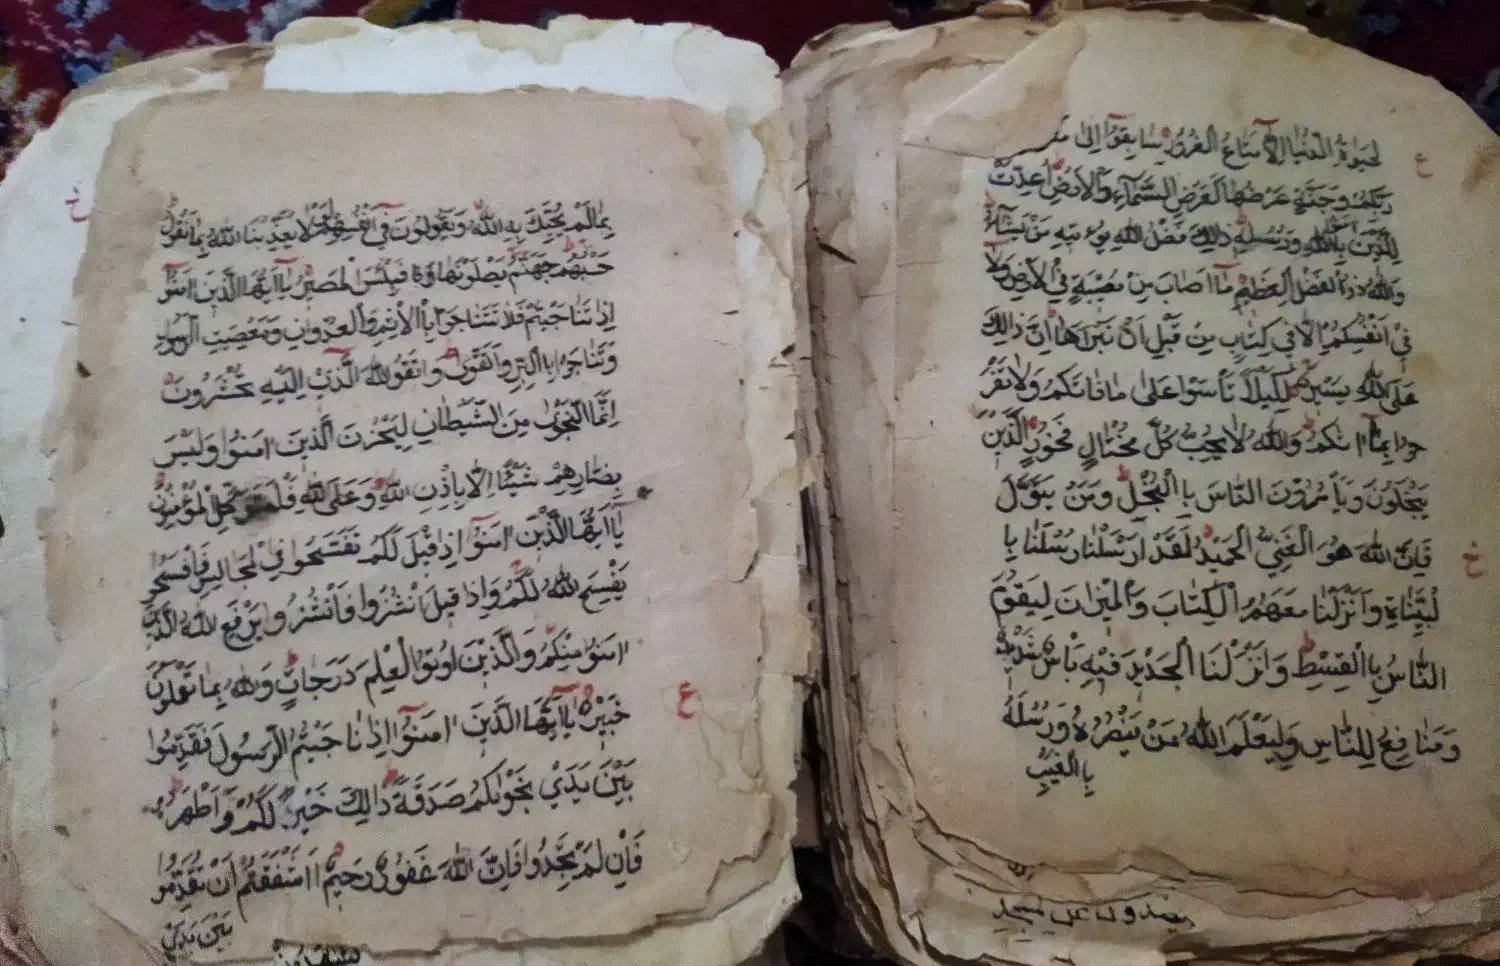 لحيوة الدنيا الا متاع الغرور سابقوا الى
ربكم وجنة عرضها كعرض السماء والارض اعدت
للذين امنوا بالله ورسله ذلك فضل الله يؤتيه من يشاء
والله ذو الفضل العظيم ما اصاب من مصيبة في الارض ولا
في انفسكم الا في كتاب من قبل ان نبراها ان ذلك
على الله يسير لكيلا تاسوا على ما فاتكم ولا تفر
حوا بما اتىكم والله لا يحب كل مختال فخور الذين
يبخلون ويامرون الناس با البخل ومن يتول
فان الله هو الغني الحميد لقد ارسلنا رسلنا با
لبينات وانزلنا معهم الكتاب والميزان ليقوم
الناس با القسط وانزلنا الحديد فيه باس شديد
ومنافع للناس وليعلم الله من ينصره ورسله
با الغيب
ع
بمالم يحيك به الله ويقولون في انفسهم لولا يعذبنا الله بما نقول
حسبهم جهنم يصلونها فبئس لمصير يا ايها الذين امنوا
اذا تناجيتم فلا تتناجوا با الاثم والعدوان ومعصيت الرسول
وتناجوا با البر والتقوى واتقو الله الذي اليه تحشرون
انما النجوى من الشيطان ليحزن الذين امنوا وليس
بضارهم شيئا الا باذن الله وعلى الله المؤمنون
يا ايها الذين امنوا اذا قيل لكم تفسحوا في لمجالس فافسحوا
يفسح الله لكم واذا قيل انشزوا فانشزوا يرفع الله الذين
امنوا منكم والذين اوتوا لعلم درجات والله بما تعملون
خبير يا ايها الذين امنوا اذا ناجيتم الرسول فقدموا
بين يدي نجوىكم صدقة ذالك خير لكم واطهر
فان لم تجدوا فان الله غفور رحيم ااشفقتم ان تقدموا
بين يدي
ع